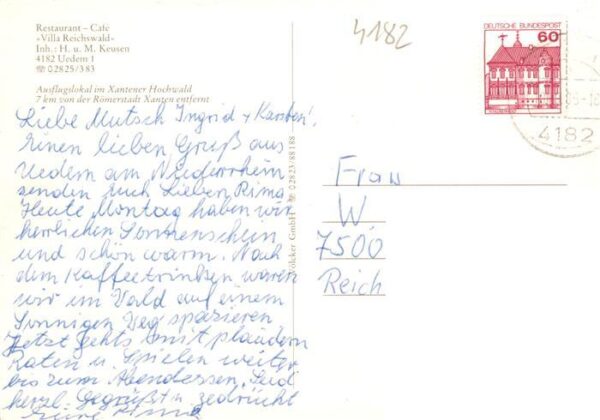 Restaurant – Café
»Villa Reichswald«
Inh.: H. u. M. Keusen
4182 Uedem 1
☎ 0 28 25 / 3 83
Ausflugslokal im Xantener Hochwald
7 km von der Römerstadt Xanten entfernt
4182
DEUTSCHE BUNDESPOST
60
4182
Liebe Mutsch Ingrid + Karsten!
Einen lieben Gruß aus
Uedem am Niederrhein
senden Euch Lieben Rima
Heute Montag haben wir
herrlichen Sonnenschein
und schön warm. Nach
dem Kaffeetrinken waren
wir im Wald auf einem
Sonnigen Weg spazieren
Jetzt gehts mit plaudern
Raten u. Spielen weiter
bis zum Abendessen, Seid
herzl. Gegrüßt u. gedrückt
Eure
GmbH ☎ 0 28 23/8 81 88
Frau
W.
7500
Reich